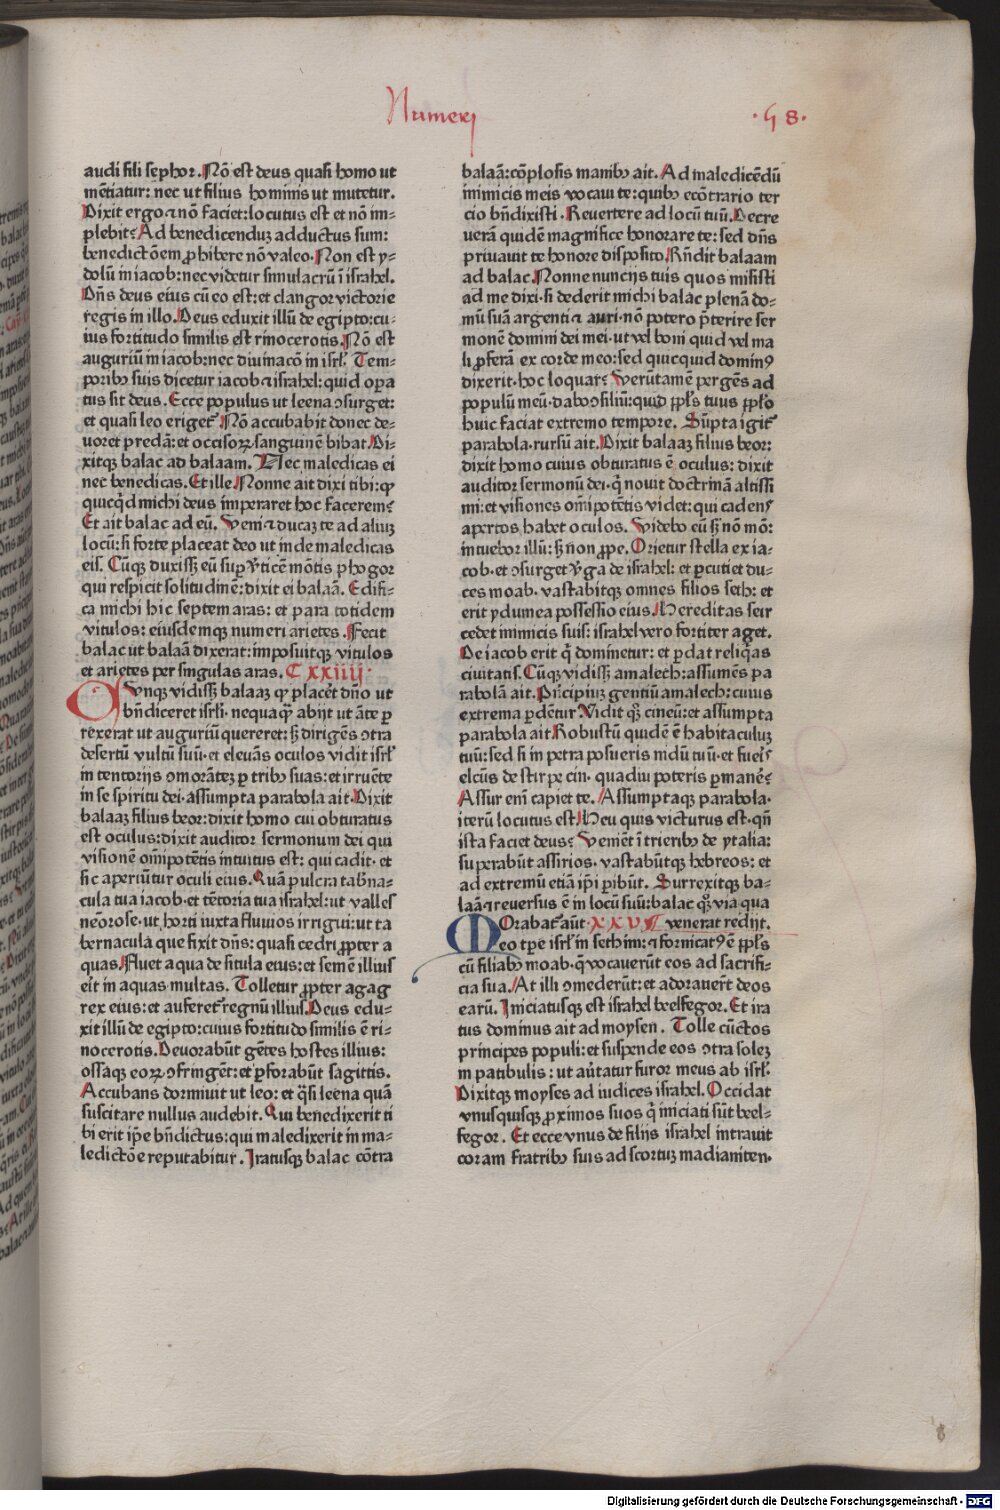 Numerj
·58·
audi fili sephor. Nō est deus quasi homo ut
mētiatur: nec ut filius hominis ut mutetur.
Dixit ergo ⁊ nō faciet: locutus est et nō im⸗
plebit? Ad benedicenduz adductus sum:
benedictōem ꝓhibere nō valeo. Non est y⸗
dolū in iacob: nec videtur simulacrū ī israhel.
Dn̄s deus eius cū eo est: et clangor victorie
regis in illo. Deus eduxit illū de egipto: cu⸗
ius fortitudo similis est rinocerotis. Nō est
auguriū in iacob: nec diuinacō in isrl̄. Tem⸗
poribꝫ suis dicetur iacob ⁊ israhel: quid oꝑa
tus sit deus. Ecce populus ut leena ↄsurget:
et quasi leo eriget. Nō accubabit donec de⸗
uoret predā: et occisoꝝ sanguinē bibat. Di⸗
xitqꝫ balac ad balaam. Nec maledicas ei
nec benedicas. Et ille. Nonne ait dixi tibi: ꝙ
quicq̄d michi deus imperaret hoc facerem?
Et ait balac ad eū. Veni ⁊ ducaꝫ te ad aliuꝫ
locū: si forte placeat deo ut inde maledicas
eis. Cūqꝫ duxissꝫ eū suꝑ v̓ticē mōtis phogor
qui respicit solitudinē: dixit ei balaā. Edifi⸗
ca michi hic septem aras: et para totidem
vitulos: eiusdemqꝫ numeri arietes. Fecit
balac ut balaā dixerat: imposuitqꝫ vitulos
et arietes per singulas aras. C xxiiij·
CVnqꝫ vidissꝫ balaaꝫ ꝙ placēt dn̄o ut
bn̄diceret isrl̄i· nequaq̄ꝫ abijt ut āte ꝑ
rexerat ut auguriū quereret: sꝫ dirigēs ↄtra
desertū vultū suū· et eleuās oculos vidit isrl̄
in tentorijs ↄmorātēꝫ ꝑ tribꝫ suas: et irruēte
in se spiritu dei· assumpta parabola ait. Dixit
balaaꝫ filius beor: dixit homo cui obturatus
est oculus: dixit auditor sermonum dei qui
visionē om̄ipotētis intuitus est: qui cadit· et
sic aperiūtur oculi eius. Quā pulcra tab̄na⸗
cula tua iacob· et tētoria tua israhel: ut valles
neōrose· ut horti iuxta fluuios irrigui: ut ta
bernacula que fixit dn̄s: quasi cedri ꝓpter a
quas. Fluet aqua de situla eius: et semē illius
eīt in aquas multas. Tolletur ꝓpter agag
rex eius: et auferet̄ regnū illius. Deus edu⸗
xit illū de egipto: cuius fortitudo similis ē ri⸗
nocerotis. Deuorabūt gētes hostes illius:
ossaqꝫ eoꝝ ↄfringēt: et ꝑforabūt sagittis.
Accubans dormiuit ut leo: et q̄si leena quā
suscitare nullus audebit. Qui benedixerit ti
bi erit ip̄e bn̄dictus: qui maledixerit in ma⸗
ledictōe reputabitur. Iratusqꝫ balac cōtra
balaā: cōplosis manibꝫ ait. Ad maledicēdū
inimicis meis vocaui te: quibꝫ ecōtrario ter
cio bn̄dixisti. Reuertere ad locū tuū. Decre
uerā quidē magnifice honorare te: sed dn̄s
priuauit te honore disposito. Rn̄dit balaam
ad balac. Nonne nuncijs tuis quos misisti
ad me dixi· si dederit michi balac plenā do⸗
mū suā argenti ⁊ auri· nō potero p̄terire ser
monē domini dei mei· ut vel boni quid vel ma
li ꝓferā ex corde meo: sed quicquid dominꝰ
dixerit· hoc loquar? Verūtamē pergēs ad
populū meū· dabo ↄsiliū: quid ppl̄s tuus ppl̄o
huic faciat extremo tempore. Sūpta igit̄
parabola· rursū ait. Dixit balaaꝫ filius beor:
dixit homo cuius obturatus ē oculus: dixit
auditor sermonū dei· q̄ nouit doctrinā altissi
mi: et visiones om̄ipotētis videt: qui cadens
apertos habet oculos. Videbo eū sꝫ nō mō:
intuebor illū: sꝫ non ꝓpe. Orietur stella ex ia⸗
cob· et ↄsurget v̓ga de israhel: et ꝑcutiet du⸗
ces moab· vastabitqꝫ omnes filios seth: et
erit ydumea possessio eius. Hereditas seir
cedet inimicis suis: israhel vero fortiter aget.
De iacob erit q̄ dominetur: et ꝑdat reliq̄as
ciuitatis. Cūqꝫ vidissꝫ amalech: assumēs pa
rabolā ait. Pn̄cipiuꝫ gentiū amalech: cuius
extrema ꝑdētur. Vidit qꝫ cineū: et assumpta
parabola ait. Robustū quidē ē habitaculuꝫ
tuū: sed si in petra posueris nidū tuū· et fue̓is
elc̄us de stirpe cin· quādiu poteris ꝑmanē?
Assur enī capiet te. Assumptaqꝫ parabola·
iterū locutus est. Heu quis victurus est· qn̄
ista faciet deus? Veniēt ī trieribꝫ de ytalia:
superabūt assirios· vastabūtqꝫ hebreos: et
ad extremū etiā ip̄i ꝑibūt. Surrexitqꝫ ba⸗
laā ⁊ reuersus ē in locū suū: balac qꝫ via qua
MOrabat̄ aūt· XXV ¶ venerat redijt.
eo tꝑe isrl̄ in sethim: ⁊ fornicatꝰ ē ppl̄s
cū filiabꝫ moab· q̄ vocauerūt eos ad sacrifi⸗
cia sua. At illi ↄmederūt: et adorauerūt deos
earū. Iniciatusqꝫ est israhel beelfegor. Et ira
tus dominus ait ad moysen. Tolle cūctos
principes populi: et suspende eos ↄtra soleꝫ
in patibulis: ut au̓tatur furor meus ab isrl̄.
Dixitqꝫ moyses ad iudices israhel. Occidat
vnusquisqꝫ ꝓximos suos q̄ iniciati sūt beel⸗
fegor. Et ecce vnus de filijs israhel intrauit
coram fratribꝫ suis ad scortuꝫ madianiten·
8
Digitalisierung gefördert durch die Deutsche Forschungsgemeinschaft - DFG